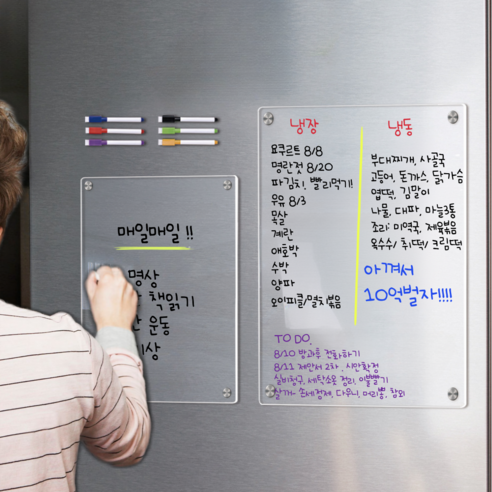 매일매일 !!
명상
책읽기
운동
냉장
요쿠르트 8/8
명란젓 8/20
파김치, 빨리먹기!
우유 8/3
목살
계란
애호박
수박
양파
오이피클/멸치볶음
냉동
부대찌개, 사골국
고등어, 돈까스, 닭가슴
엽떡, 김말이
나물, 대파, 마늘3통
조리: 미역국, 제육볶음
옥수수/ 취떡/ 크림떡
아껴서
10억벌자!!!!
TO DO,
8/10 방과후 전화하기
8/11 제안서 2차, 시안확정
실비청구, 세탁소옷 정리, 이불빨기
살거- 손세정제, 다우니, 머리뽕, 참외